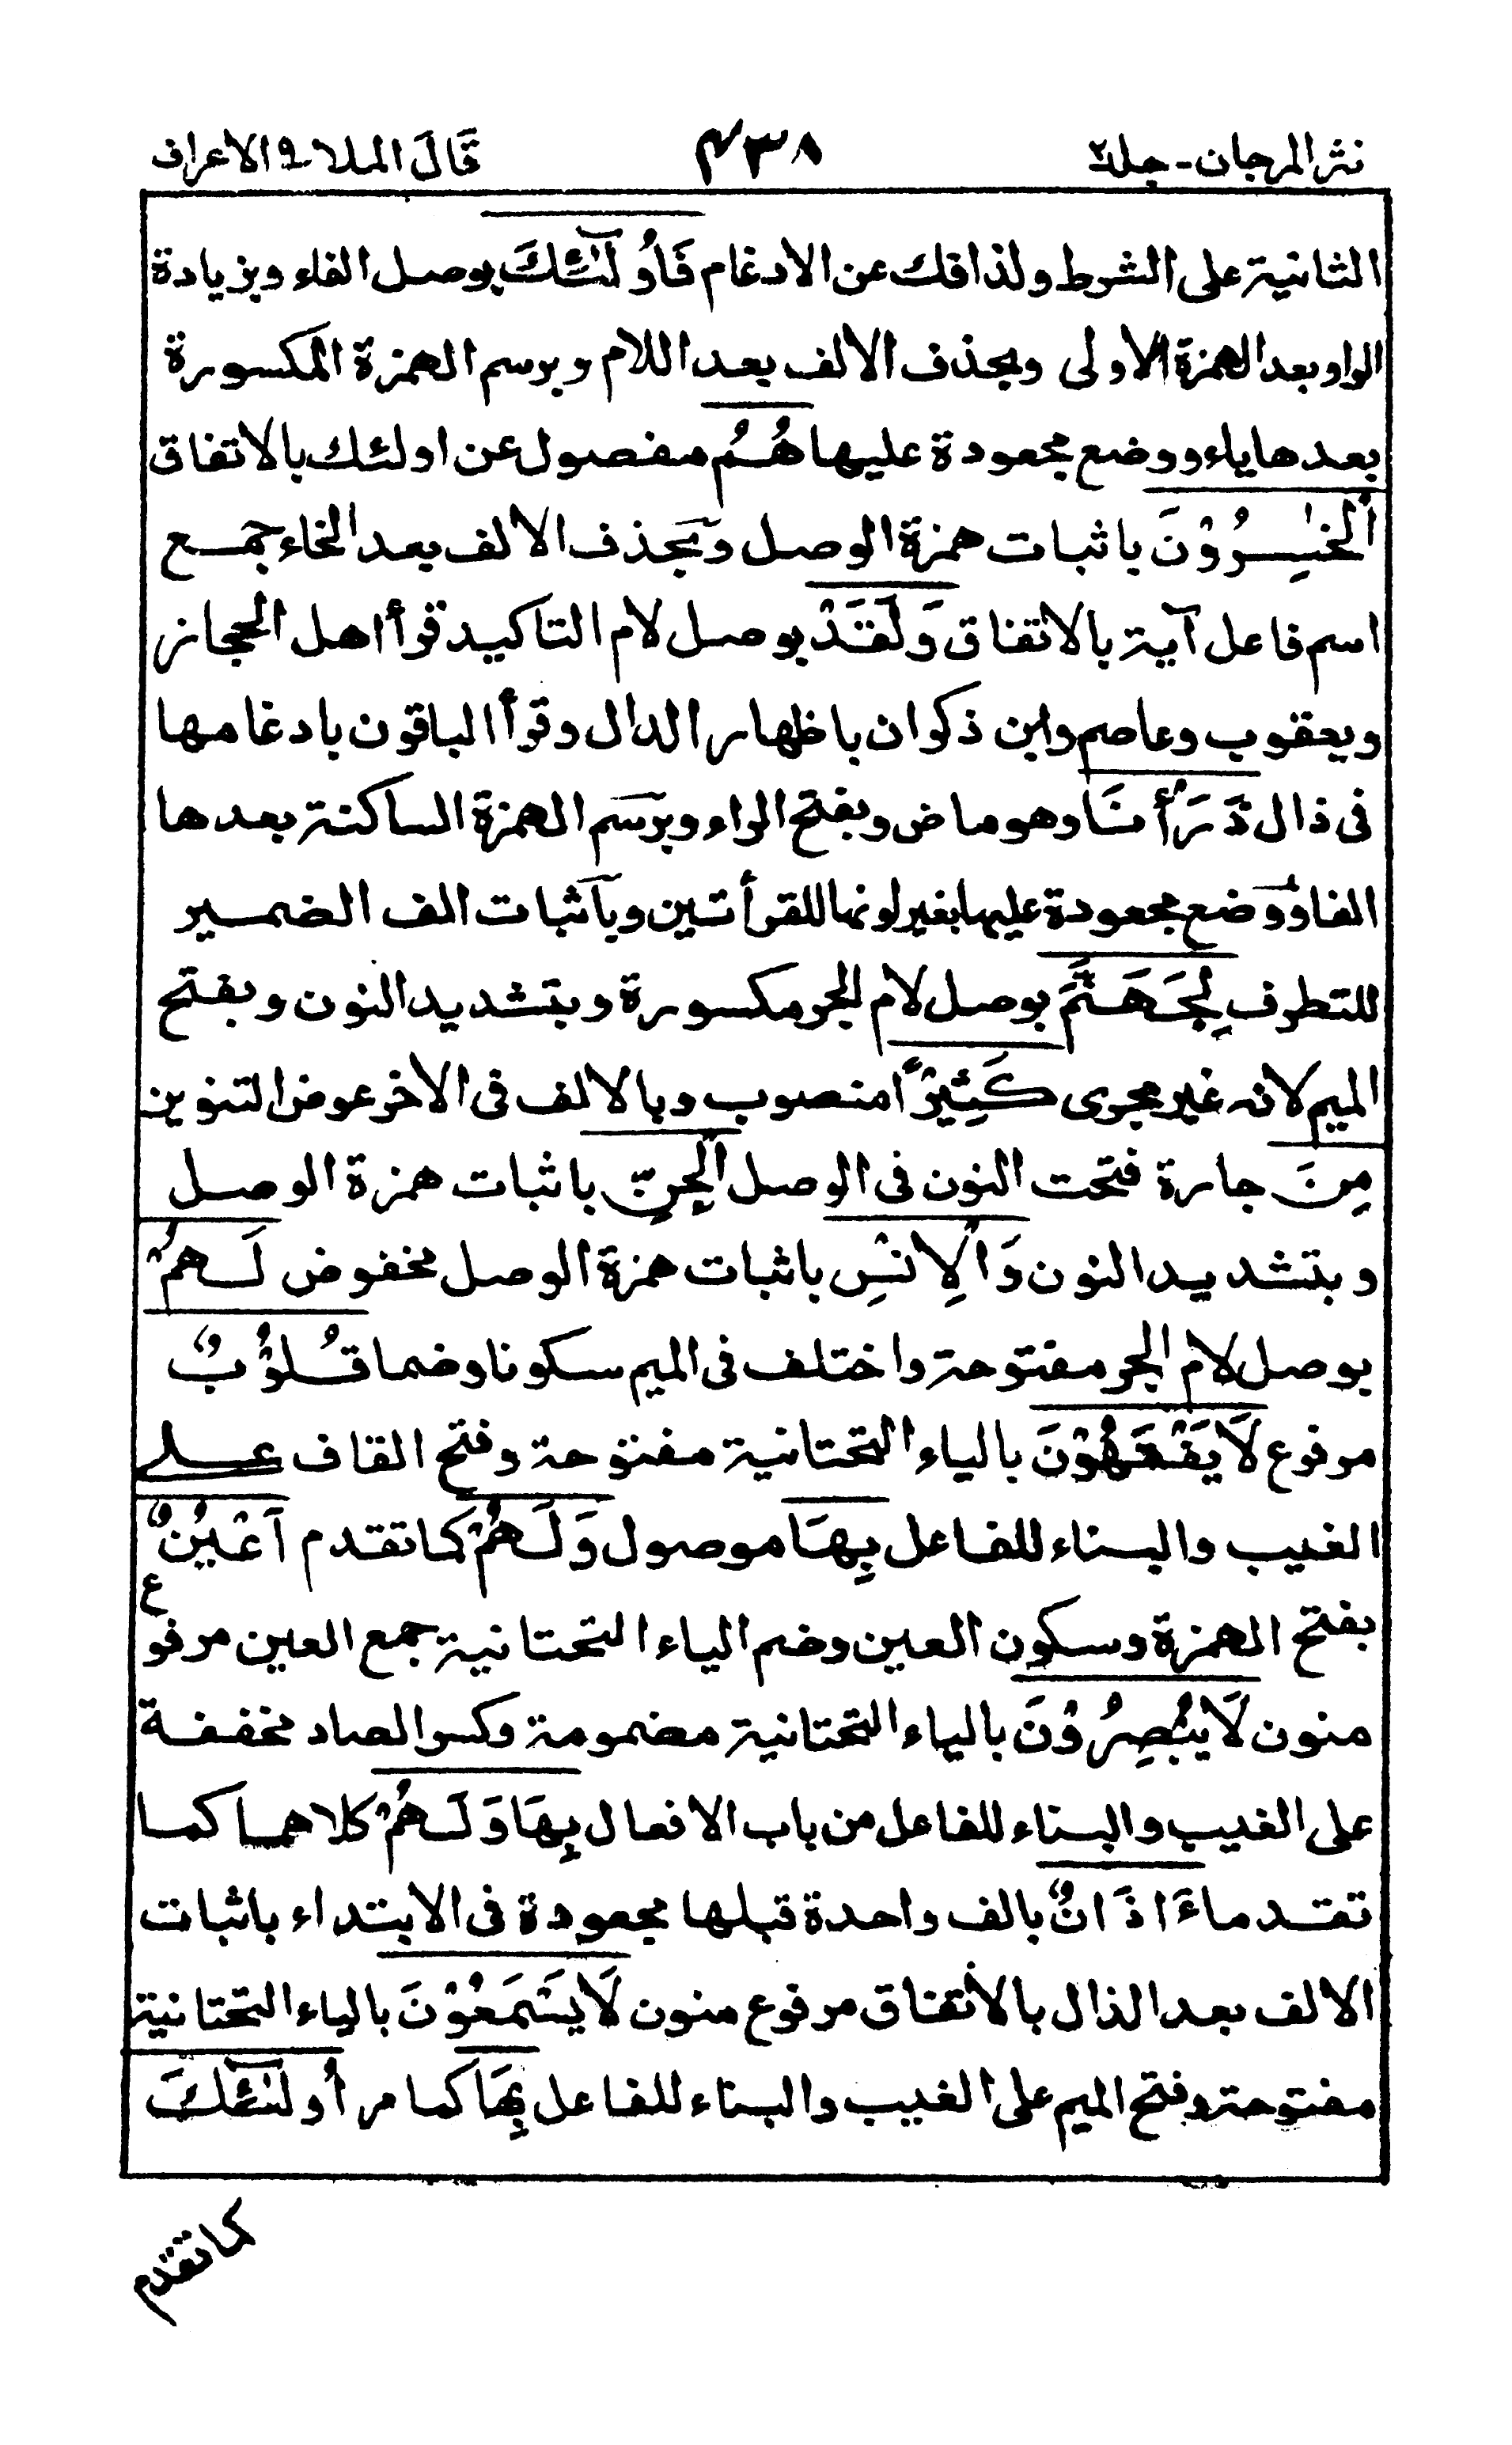 نثر المرجان - جلد٢ ٤٣٨ قَالَ الملا ٩ الاعراف
الثانية على الشرط ولذا فك عن الادغام فَاُولٰٓئِكَ بوصل الفاء وبزيادة
الواو بعد الهمزة الاولى وبحذف الالف بعد اللام وبرسم الهمزة المكسورة
بعدها ياء ووضع مجعودة عليها هُمُ مفصول عن اولئك بالاتفاق
اَلْخٰسِرُوْنَ باثبات همزة الوصل وبحذف الالف بعد الخاء جمع
اسم فاعل آية بالاتفاق وَلَقَدْ بوصل لام التاكيد قرأ اهل الحجاز
ويعقوب وعاصم وابن ذكوان باظهار الدال وقرأ الباقون بادغامها
فى ذال ذَرَأْنَا وهو ماض وبفتح الراء وبرسم الهمزة الساكنة بعدها
الفا ووضع مجعودة عليها بغير لونها للقرأتين وباثبات الف الضمير
للتطرف لِجَهَنَّمَ بوصل لام الجر مكسورة وبتشديد النون وبفتح
الميم لانه غير مجرى كَثِيْرًا منصوب وبالالف فى الاخر عوض التنوين
مِنَ جارة فتحت النون فى الوصل اَلْجِنِّ باثبات همزة الوصل
وبتشديد النون وَالْاِنْسِ باثبات همزة الوصل مخفوض لَهُمْ
بوصل لام الجر مفتوحة واختلف فى الميم سكونا وضما قُلُوْبٌ
مرفوع لَا يَفْقَهُوْنَ بالياء التحتانية مفتوحة وفتح القاف على
الغيب والبناء للفاعل بِهَا موصول وَلَهُمْ كما تقدم اَعْيُنٌ
بفتح الهمزة وسكون العين وضم الياء التحتانية جمع العين مرفوع
منون لَا يُبْصِرُوْنَ بالياء التحتانية مضمومة وكسر الصاد مخففة
على الغيب والبناء للفاعل من باب الافعال بِهَا وَلَهُمْ كلاهما كما
تقدما ءَاذَانٌ بالف واحدة قبلها مجعودة فى الابتداء باثبات
الالف بعد الذال بالاتفاق مرفوع منون لَا يَسْمَعُوْنَ بالياء التحتانية
مفتوحة وفتح الميم على الغيب والبناء للفاعل بِهَا كما مر اُولٰٓئِكَ
كما تقدم